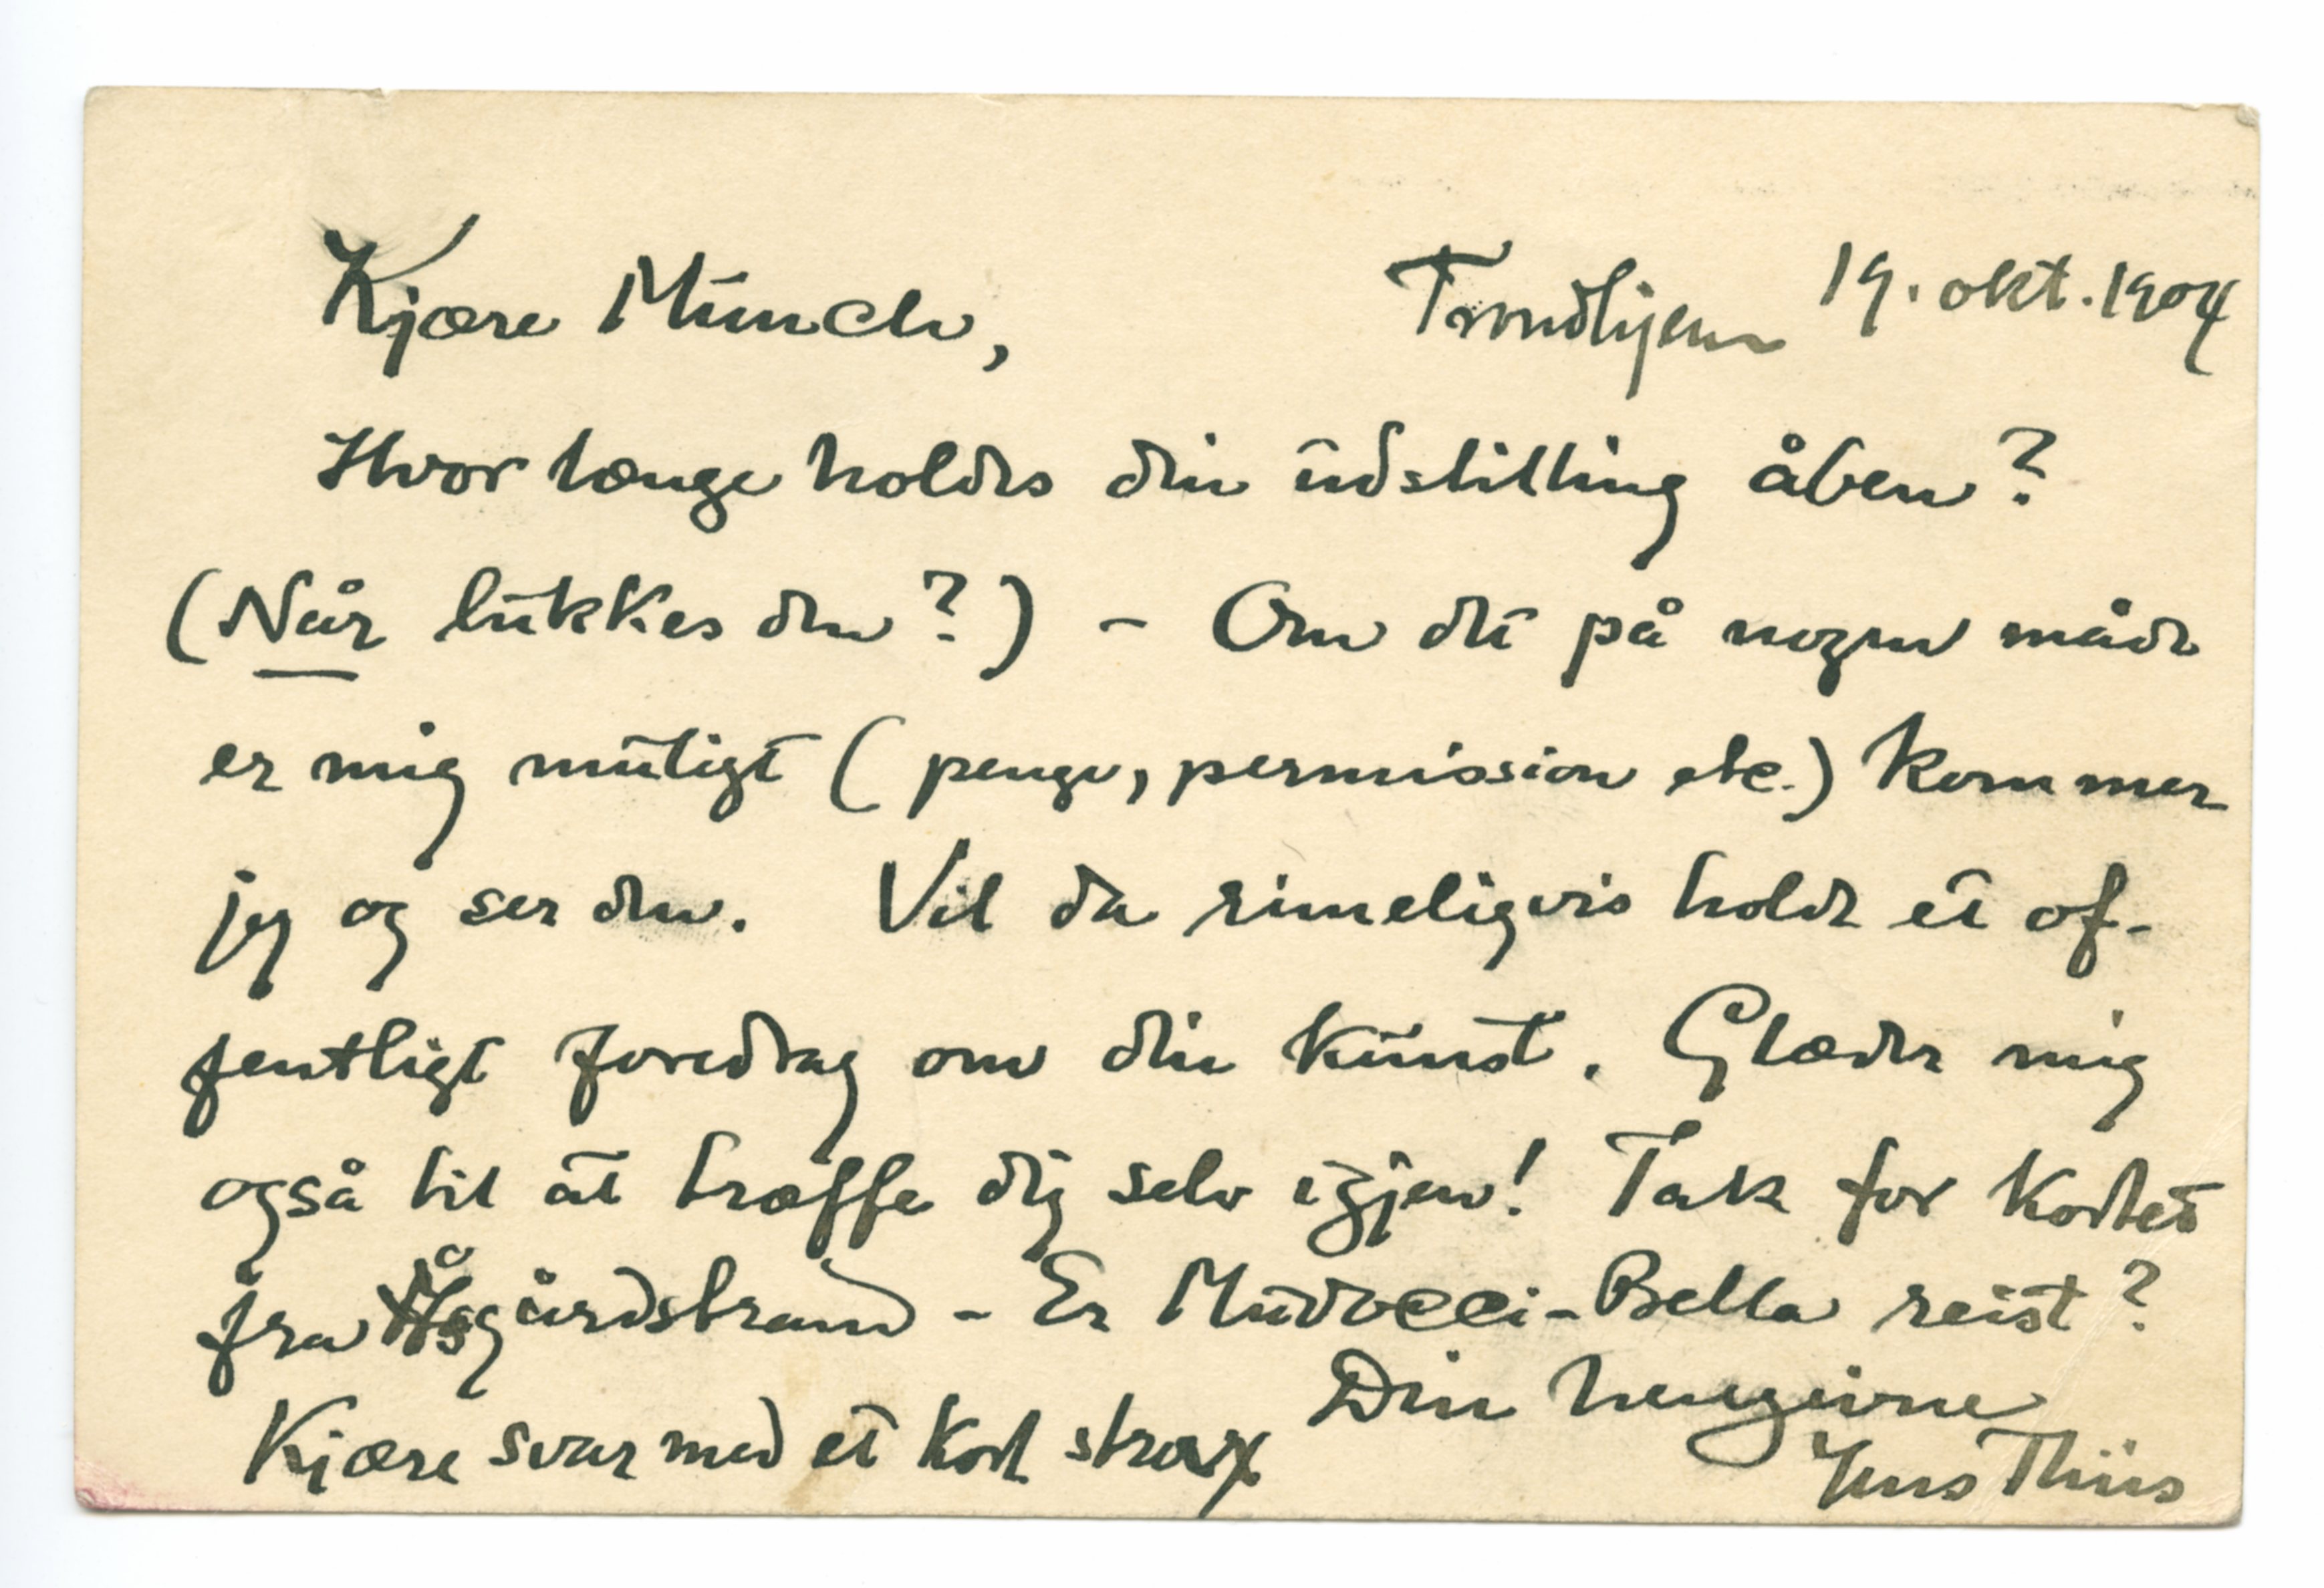 Kjære Munch, Trondhjem 19. okt. 1904
Hvor længe holdes din udstilling åben?
(Når lukkes den?) – Om det på nogen måde
er mig muligt (penge, permission etc.) kommer
jeg og ser den. Vil da rimeligvis holde et of-
fentligt foredrag om din kunst. Glæder mig
også til at træffe dig selv igjen! Tak for kortet
fra Åsgårdstrand – Er Mudocci-Bella reist?
Din hengivne
Kjære svar med et kort strax
Jens Thiis